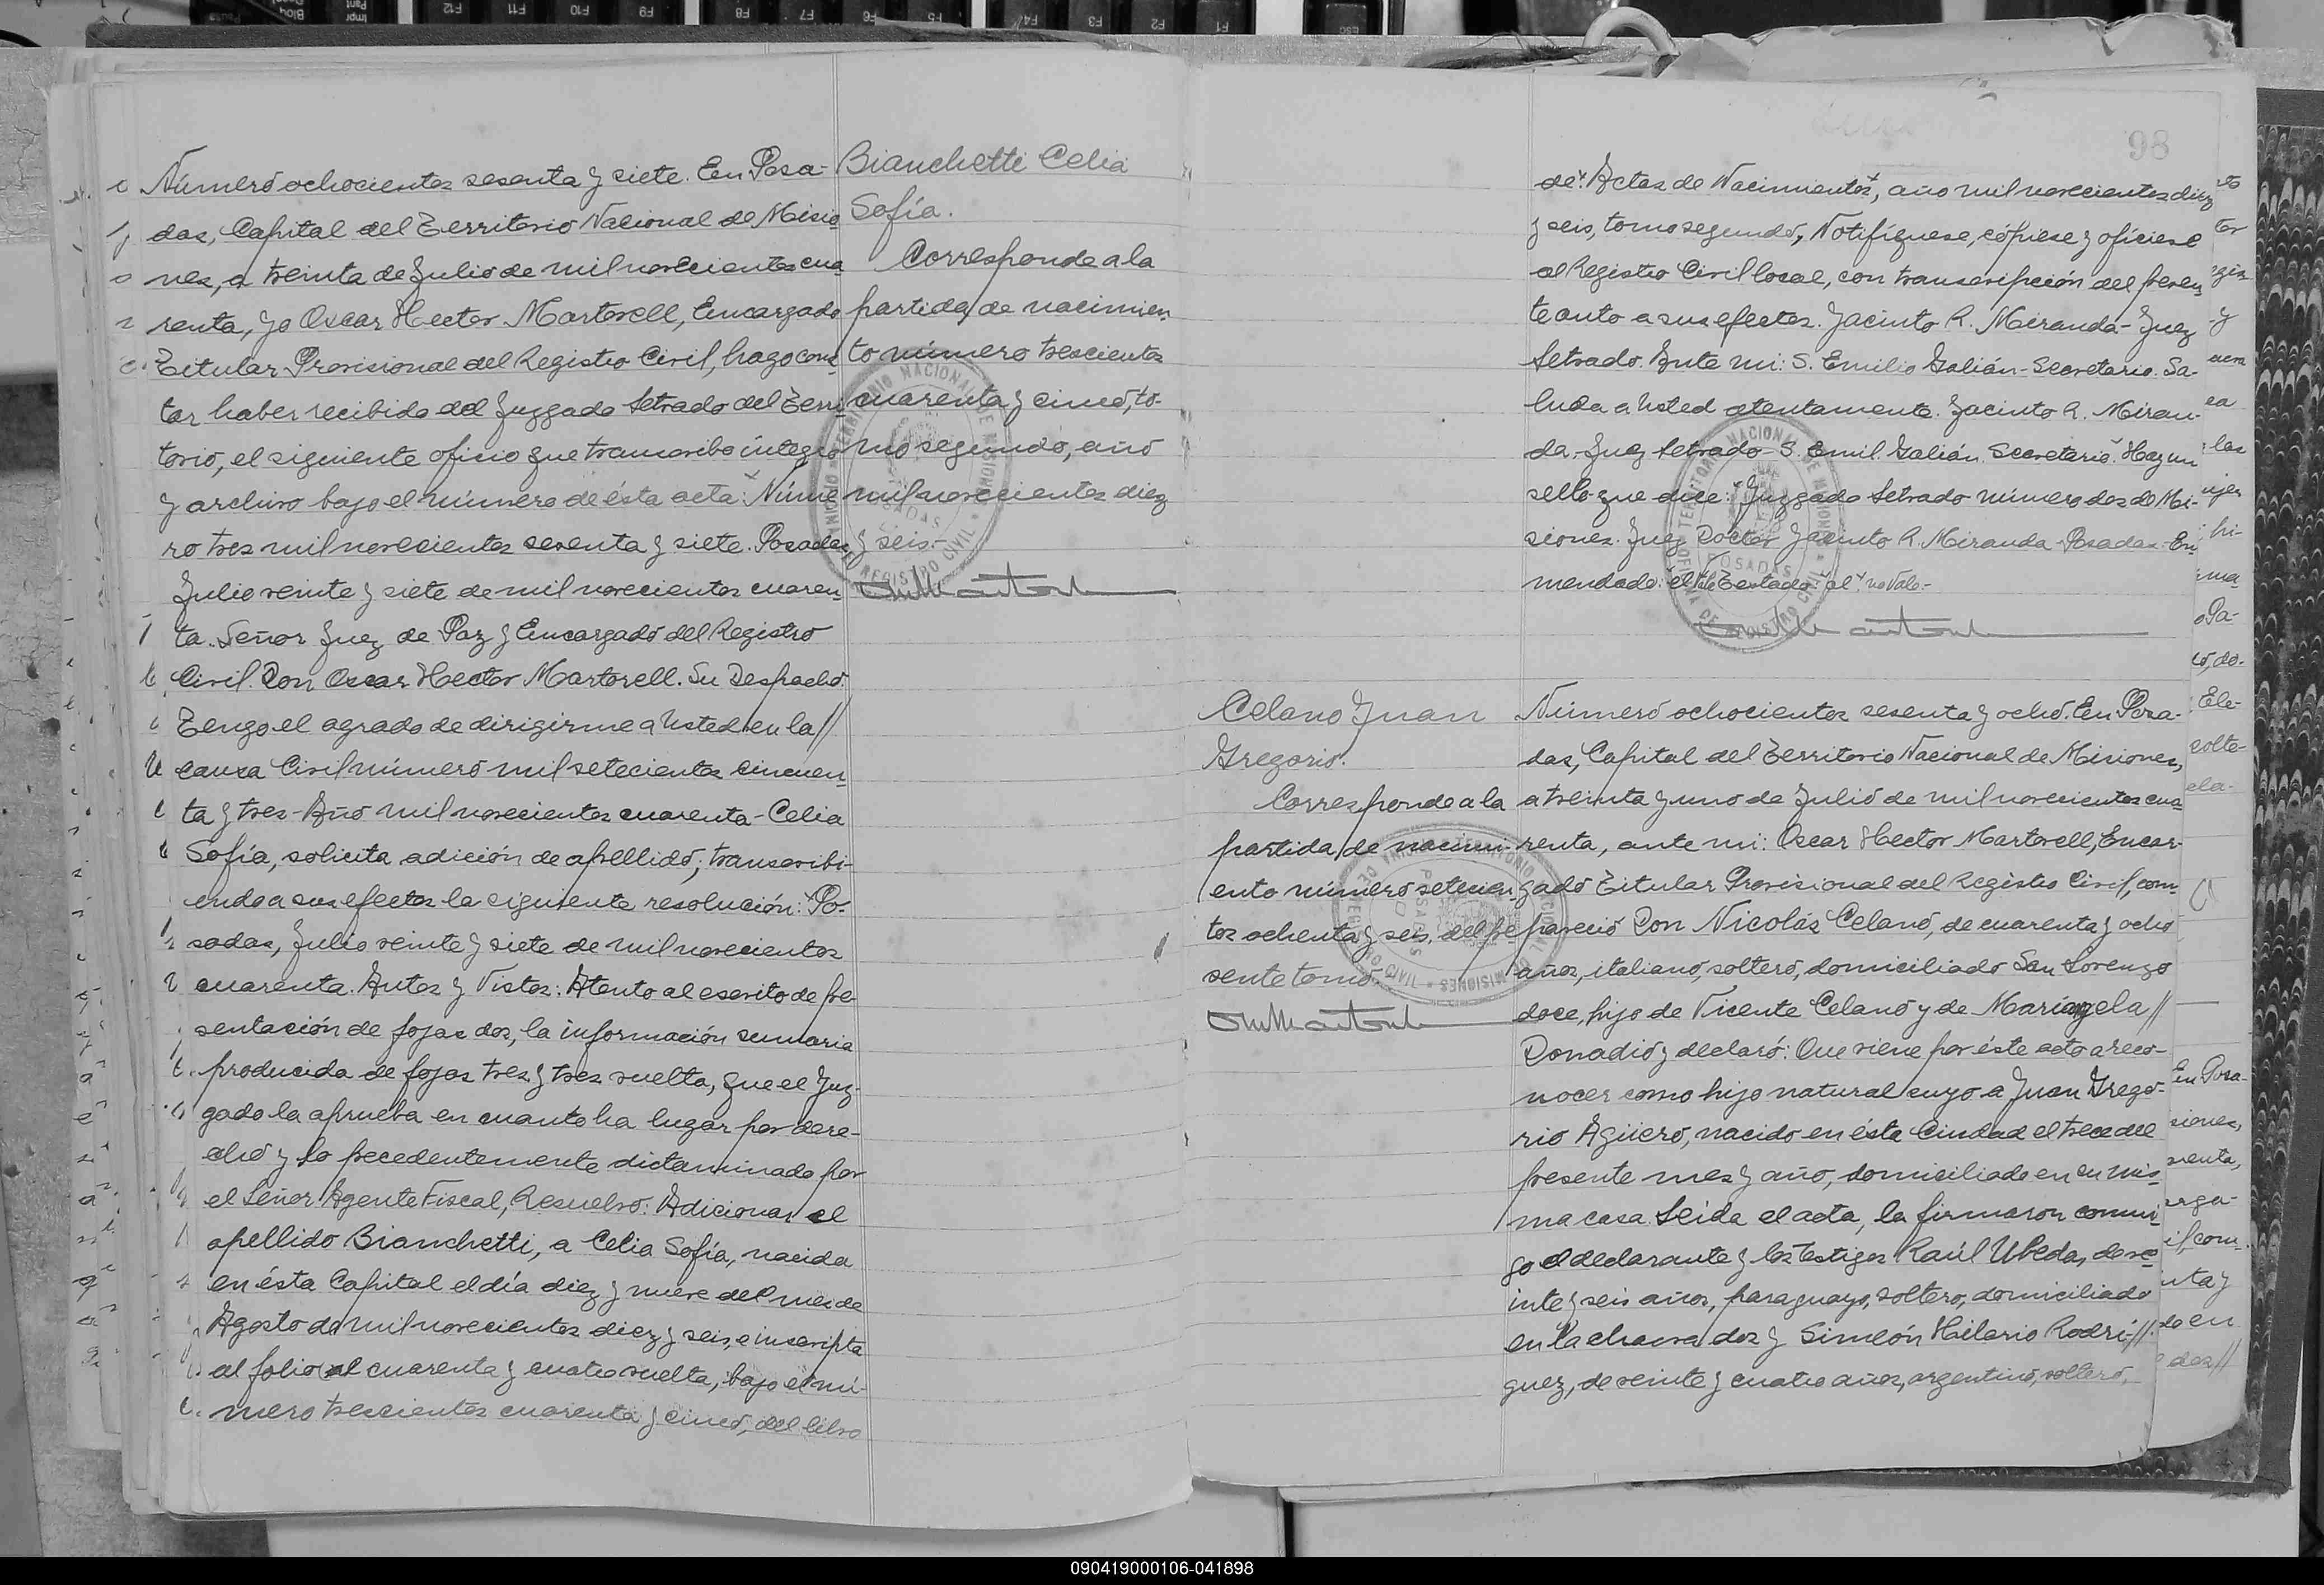 Número ochocientos sesenta y siete. En Posa-
das, Capital del Territorio Nacional de Misio
nes, a treinta de Julio de mil novecientos cua
renta, yo Oscar Hector Martorell, Encargado
Titular Provisional del Registro Civil, hago cons
tar haber recibido del Juzgado Letrado del Terri
torio, el siguiente oficio que transcribo íntegro
y archivo bajo el número de ésta acta: "Núme
ro tres mil novecientos sesenta y siete. Posadas,
Julio veinte y siete de mil novecientos cuaren
ta. Señor Juez de Paz y Encargado del Registro
Civil. Don Oscar Hector Martorell. Su Despacho.
Tengo el agrado de dirigirme a Usted en la//
causa Civil número mil setecientos cincuen
ta y tres-Año mil novecientos cuarenta-Celia
Sofía, solicita adición de apellido; transcribi-
endo a sus efectos la siguiente resolución: "Po-
sadas, Julio veinte y siete de mil novecientos
cuarenta. Autos y Vistos: Atento al escrito de pre
sentación de fojas dos, la información sumaria
producida de fojas tres y tres vuelta, que el Juz-
gado la aprueba en cuanto ha lugar por dere-
cho y lo precedentemente dictaminado por
el Señor Agente Fiscal, Resuelvo: Adicionar el
apellido Bianchetti, a Celia Sofía, nacida
en ésta Capital el día diez y nueve del mes de
Agosto de mil novecientos diez y seis, e inscripta
al folio al cuarenta y cuatro vuelta, bajo el nú-
mero trescientos cuarenta y cinco, del libro
Bianchetti Celia
Sofía.
Corresponde a la
partida de nacimien
to número trescientos
cuarenta y cinco, to-
mo segundo, año
mil novecientos diez
y seis.-
98
de "Actas de Nacimientos", año mil novecientos diez
y seis, tomo segundo, Notifíquese, cópiese y ofíciese
al Registro Civil local, con transcripción del presen
te auto a sus efectos. Jacinto R. Miranda-Juez
Letrado. Ante mi: S. Emilio Galián-Secretario. Sa-
luda a Usted atentamente. Jacinto R. Miran-
da. Juez Letrado-S. Emil. Galián. Secretario". Hay un
sello que dice: "Juzgado Letrado número dos de Mi-
siones. Juez Doctor Jacinto R. Miranda-Posadas.-En
mendado: "el" Vale Testado: "al" no Vale.-
Celano Juan
Gregorio.
Corresponde a la
partida de nacimi-
ento número setecien
tos ochenta y seis, del pre
sente tomo.-
Número ochocientos sesenta y ocho. En Posa-
das, Capital del Territorio Nacional de Misiones,
a treinta y uno de Julio de mil novecientos cua
renta, ante mi: Oscar Hector Martorell, Encar-
gado Titular Provisional del Registro Civil, com-
pareció Don Nicolás Celano, de cuarenta y ocho
años, italiano, soltero, domiciliado San Lorenzo
doce, hijo de Vicente Celano y de Mariangela//
Donadio y declaró: Que viene por éste acto a reco-
nocer como hijo natural suyo a Juan Grego-
rio Agüero, nacido en ésta Ciudad el trece del
presente mes y año, domiciliado en su mis
ma casa. Leída el acta, la firmaron conmi
go el declarante y los testigos Raúl Ubeda, de ve
inte y seis años, paraguayo, soltero, domiciliado
en la chacra dos y Simeón Hilario Rodrí-//
guez, de veinte y cuatro años, argentino, soltero,
090419000106-041898